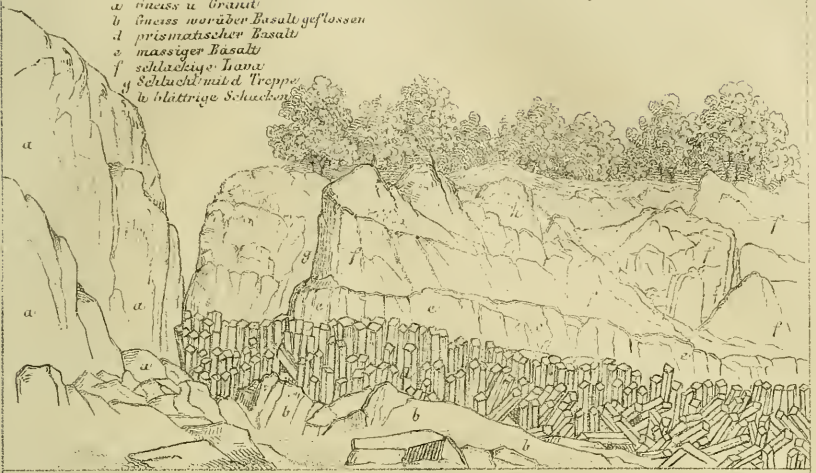 a Gneiss u Granit
b Gneiss worüber Basalt geflossen
d prismatischer Basalt
e massiger Basalt
f schlackige Lava
g Schlucht mit d Treppe
h blättrige Schacken
a
h
f
g f
a a e
e f
a
d
b b
b